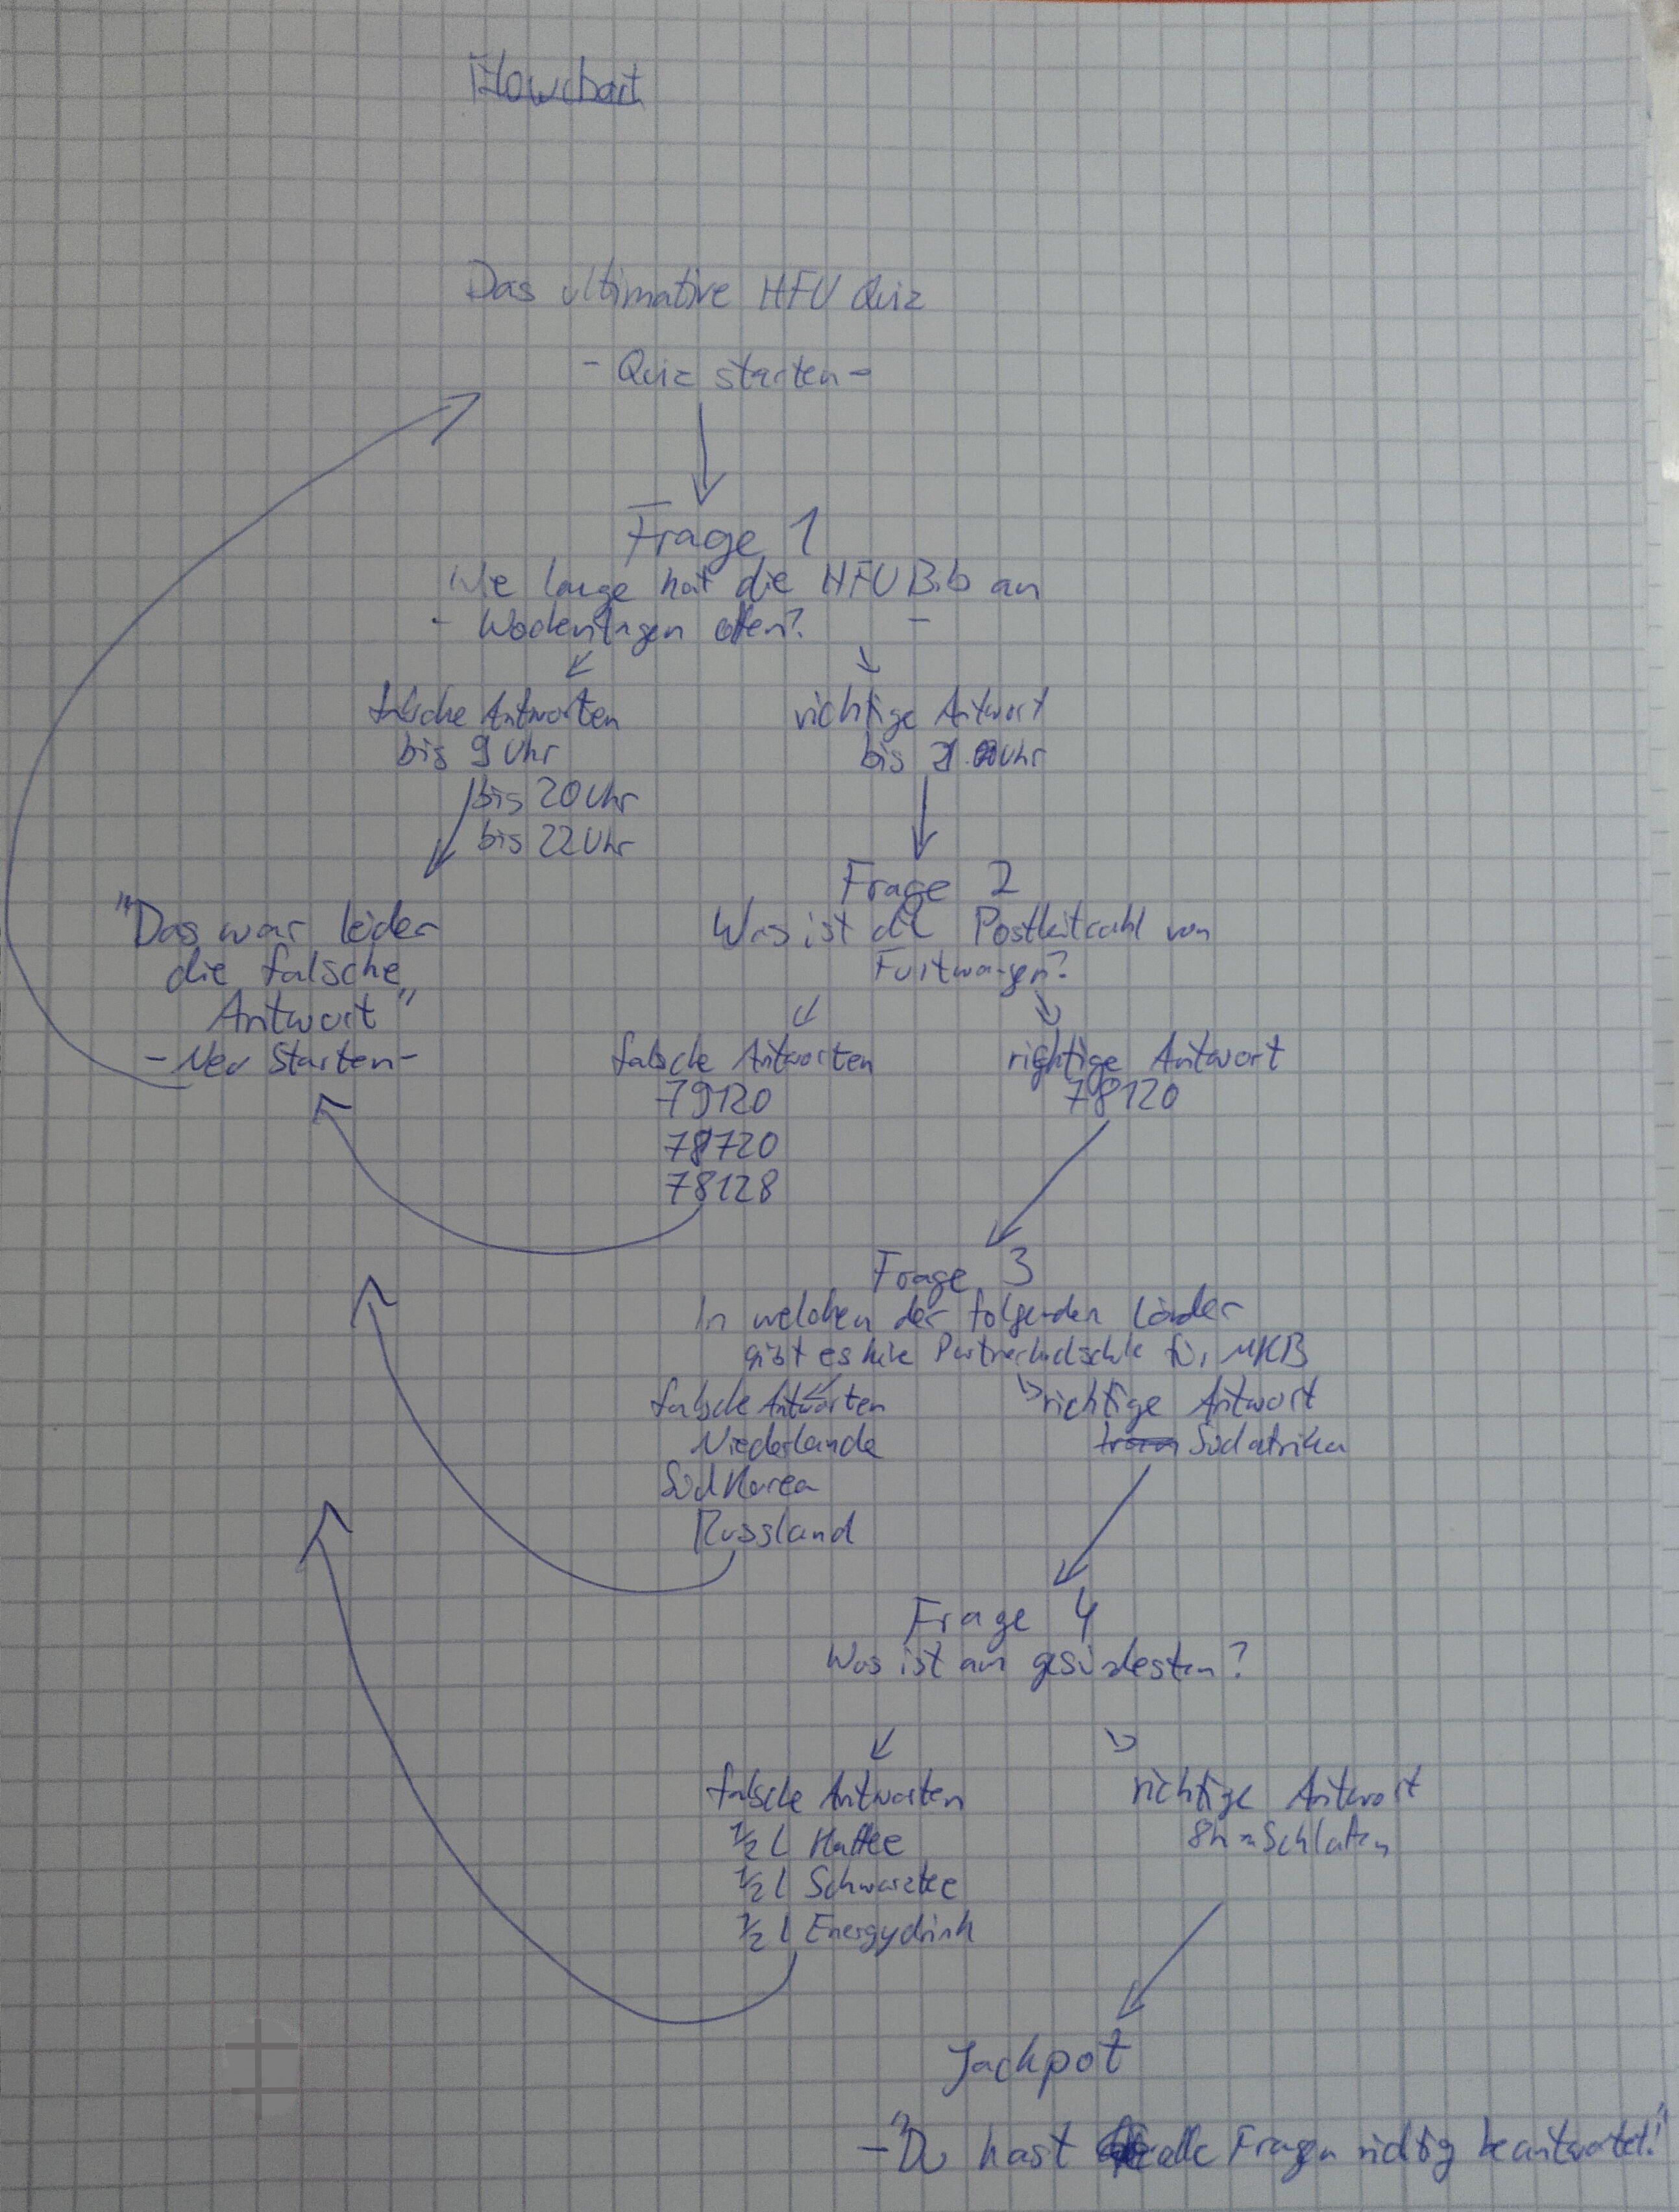 Flowchart
Das ultimative HFU Quiz
- Quiz starten -
Frage 1
Wie lange hat die HFU Bib an
- Wochentagen offen? -
falsche Antworten
bis 9 Uhr
bis 20 Uhr
bis 22 Uhr
richtige Antwort
bis Uhr
"Das war leider
die falsche
Antwort"
- Neu Starten -
Frage 2
Was ist die Postleitzahl von
Furtwangen?
falsche Antworten
79120
78720
78128
richtige Antwort
78120
Frage 3
In welchen der folgenden Länder
gibt es keine Partnerhochschule für MKB
falsche Antworten
Niederlande
Südkorea
Russland
richtige Antwort
Südafrika
Frage 4
Was ist am gesündesten?
falsche Antworten
1/2 l Kaffee
1/2 l Schwarztee
1/2 l Energydrink
richtige Antwort
8h Schlafen
Jackpot
- "Du hast alle Fragen richtig beantwortet!"